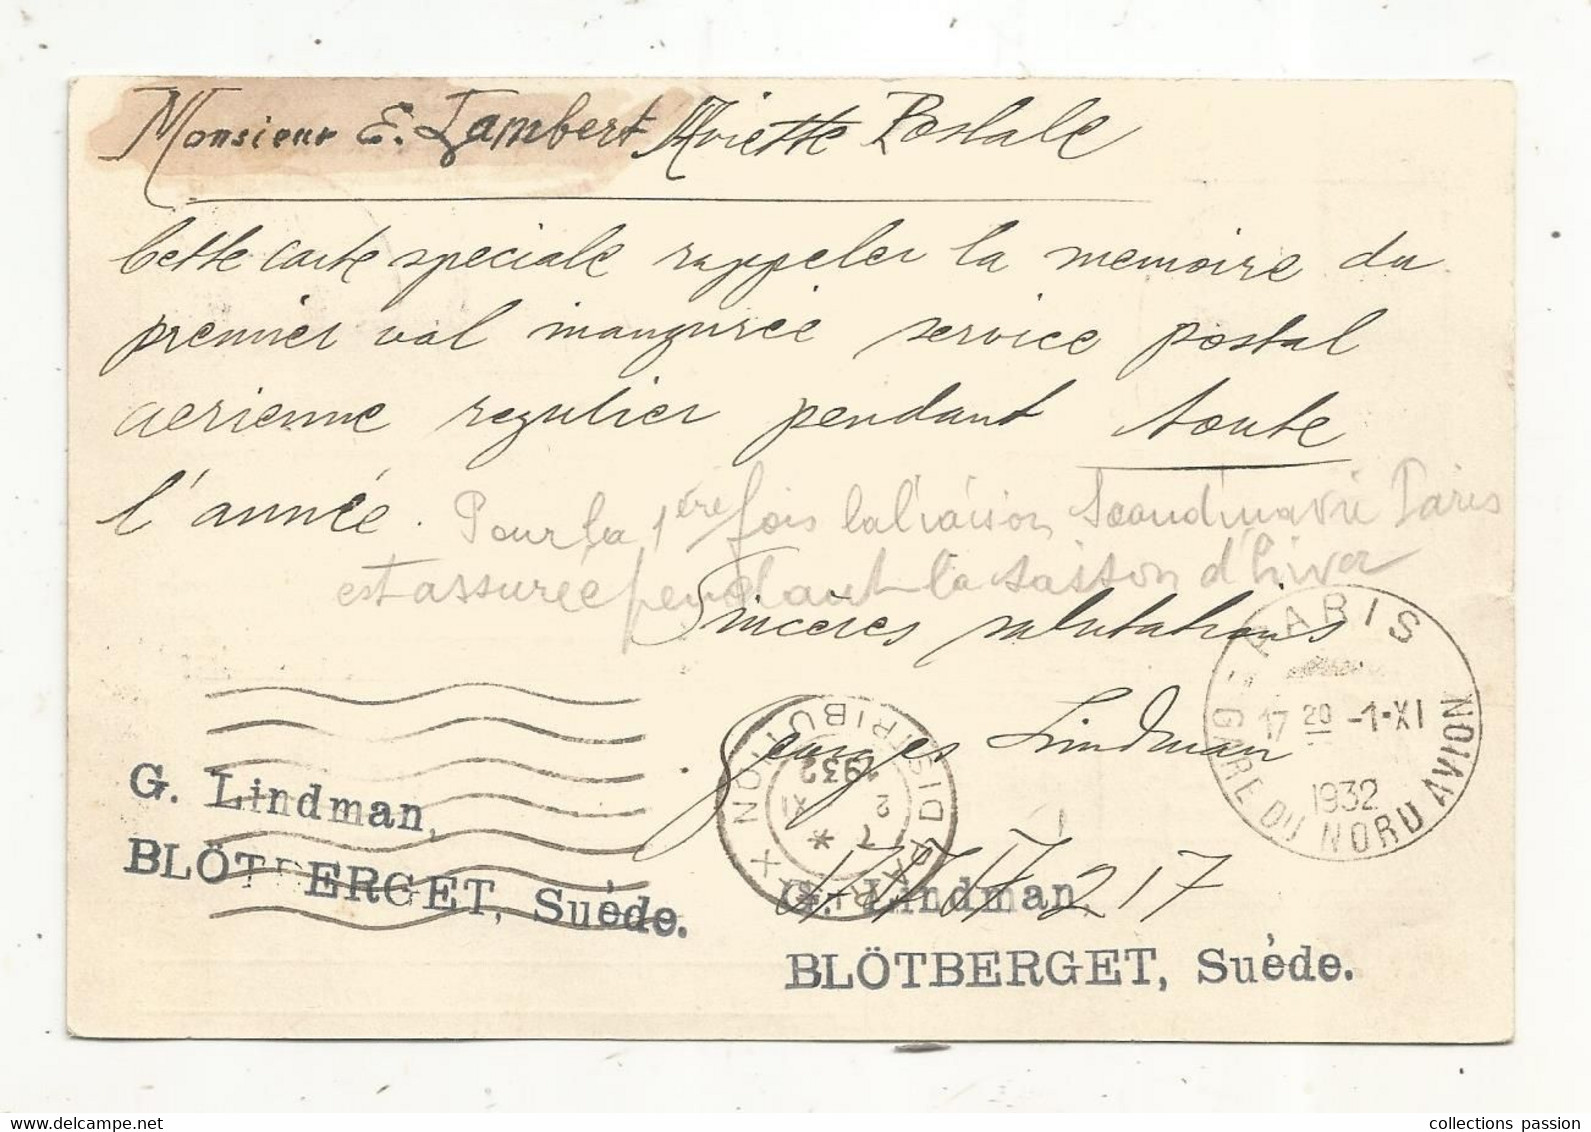 Monsieur E. Lambert, Aviette Postale
Cette carte speciale rappeler la memoire du
premier vol inaugurée service postal
aerienne regulier pendant toute
l'année.
Pour la 1ère fois la liaison Scandinavie Paris
est assurée pendant la saison d'hiver
Sincères salutations
Georges Lindman
PARIS
17 20 -1·XI
1932
GARE DU NORD AVION
PARIS DISTRIBUTION
7 *
2 XI
1932
G. Lindman,
BLÖTBERGET, Suéde.
217
G. Lindman,
BLÖTBERGET, Suéde.
collections passion